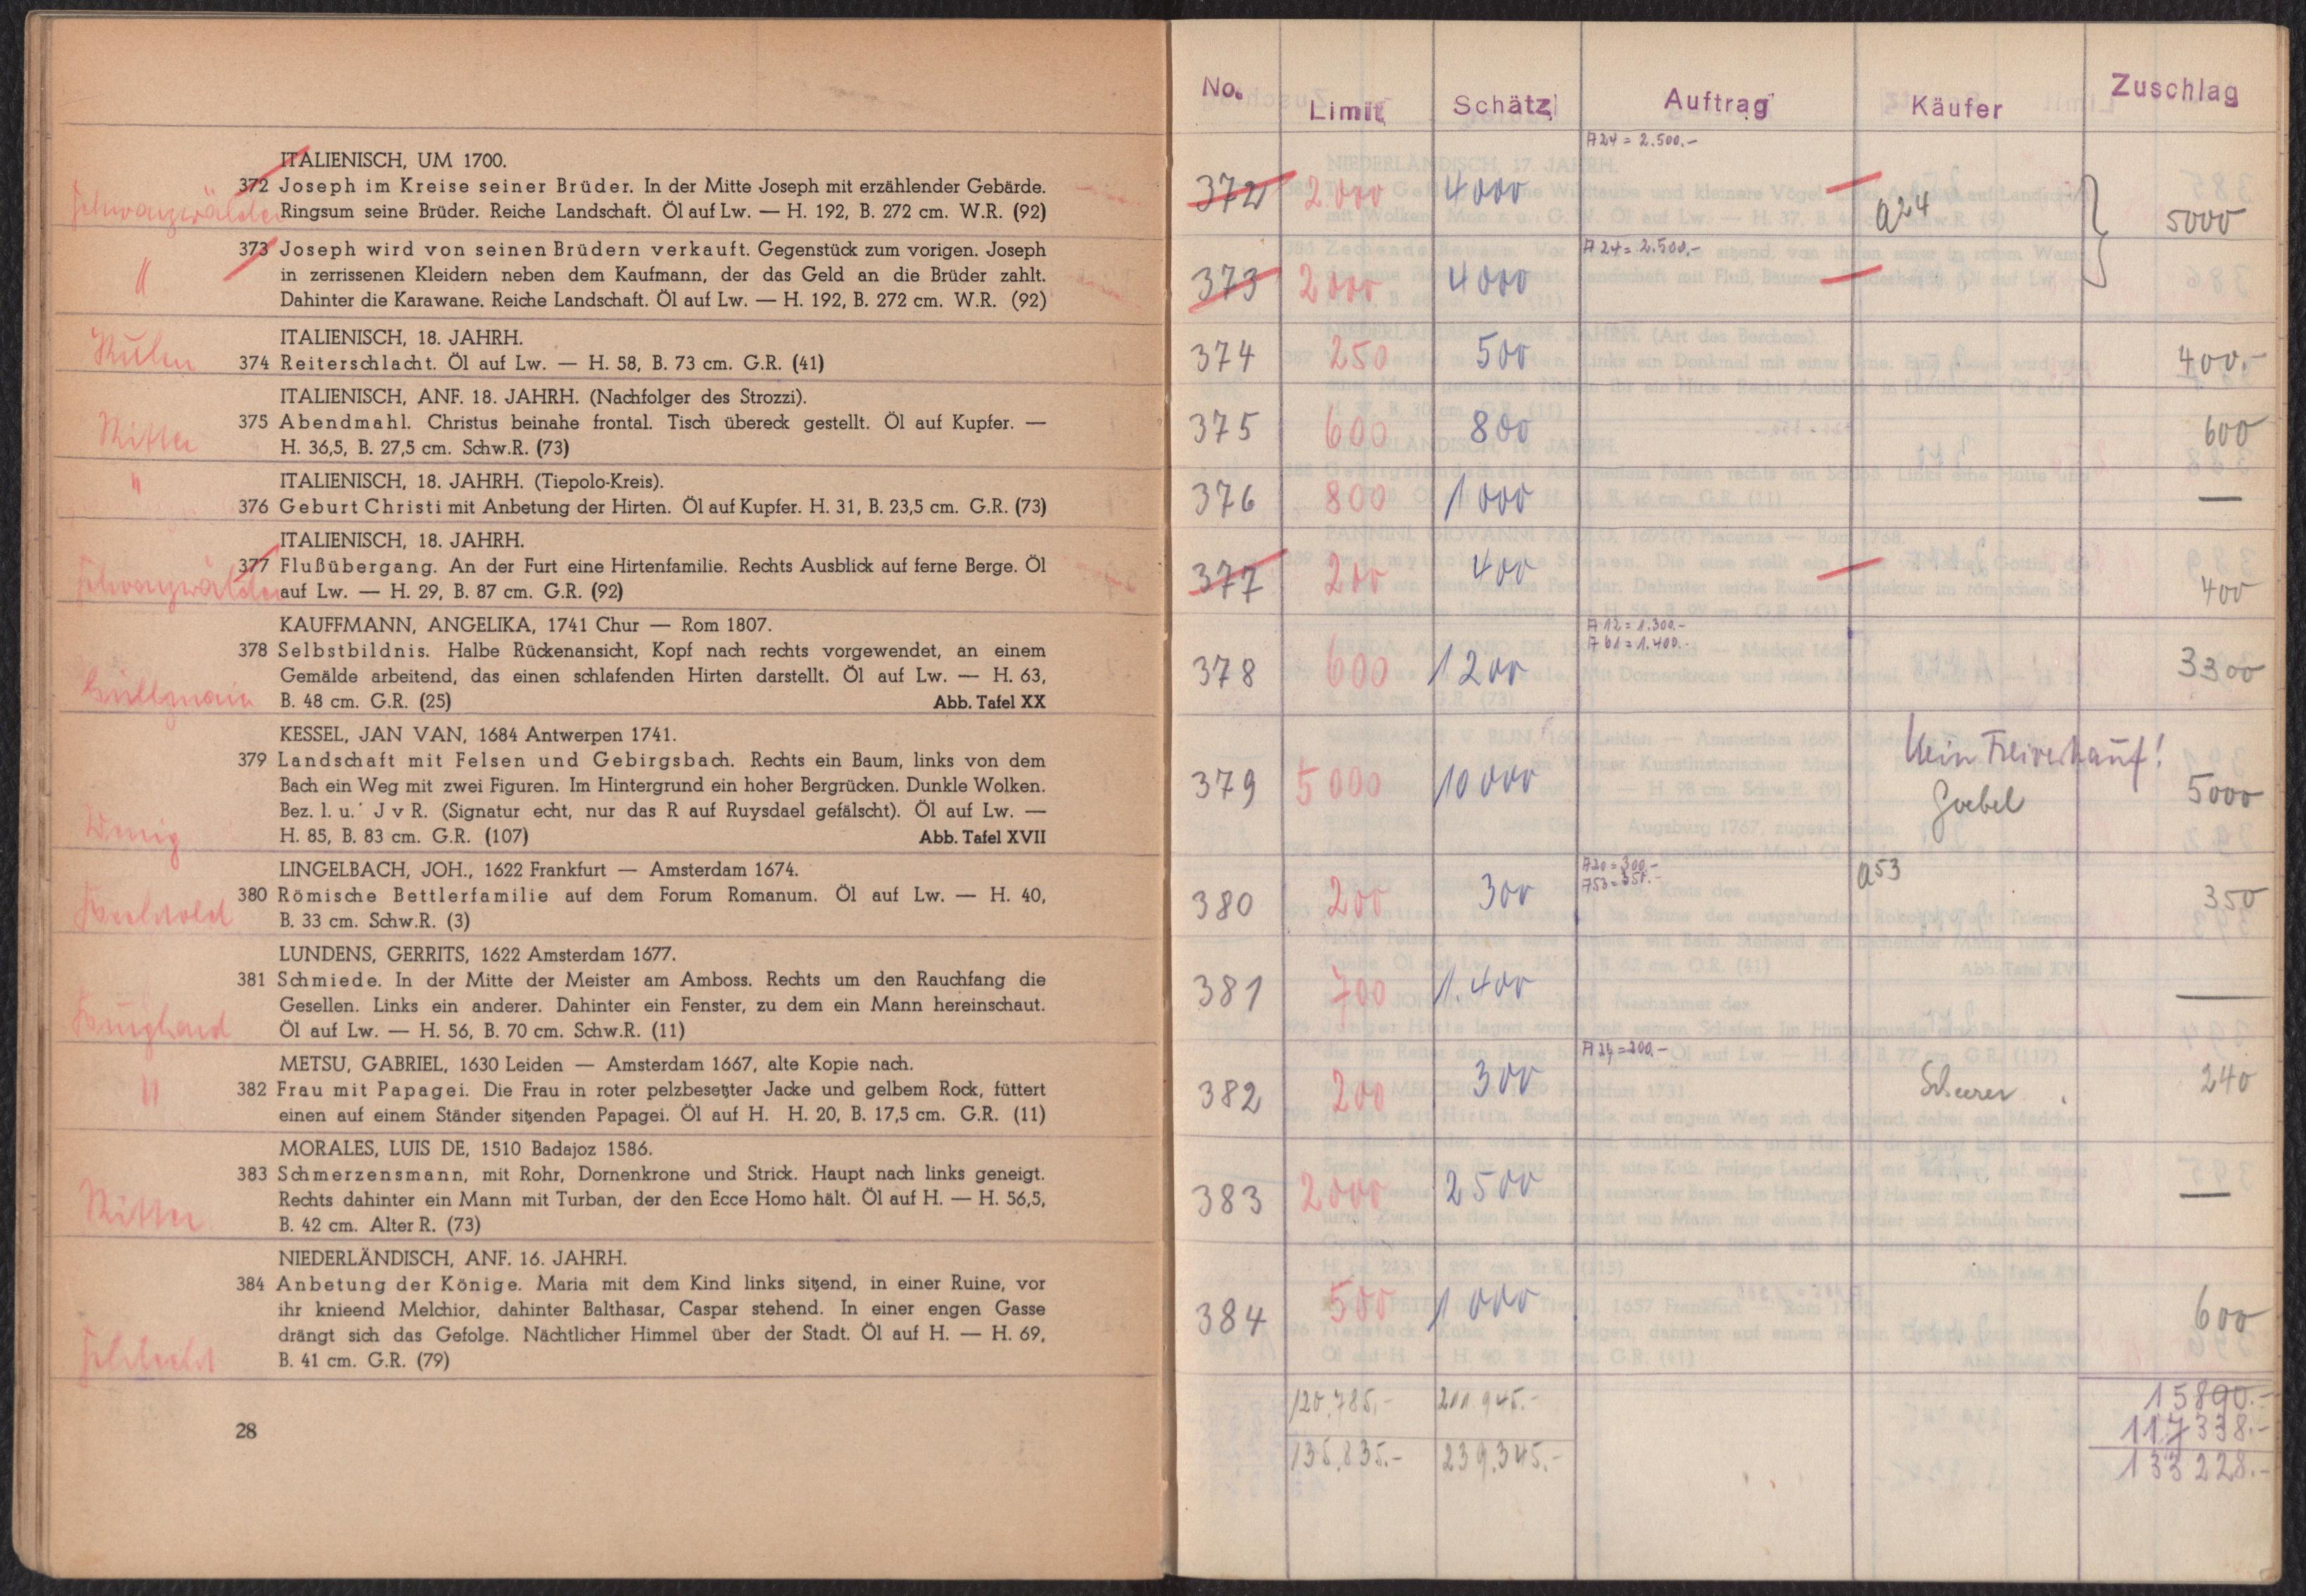 ITALIENISCH, UM 1700.
372 Joseph im Kreise seiner Brüder. In der Mitte Joseph mit erzählender Gebärde.
Schwarzwälder Ringsum seine Brüder. Reiche Landschaft. Öl auf Lw. — H. 192, B. 272 cm. W.R. (92)
373 Joseph wird von seinen Brüdern verkauft. Gegenstück zum vorigen. Joseph
" in zerrissenen Kleidern neben dem Kaufmann, der das Geld an die Brüder zahlt.
Dahinter die Karawane. Reiche Landschaft. Öl auf Lw. — H. 192, B. 272 cm. W.R. (92)
ITALIENISCH, 18. JAHRH.
374 Reiterschlacht. Öl auf Lw. — H. 58, B. 73 cm. G.R. (41)
ITALIENISCH, ANF. 18. JAHRH. (Nachfolger des Strozzi).
Ritter 375 Abendmahl. Christus beinahe frontal. Tisch übereck gestellt. Öl auf Kupfer. —
H. 36,5, B. 27,5 cm. Schw.R. (73)
" ITALIENISCH, 18. JAHRH. (Tiepolo-Kreis).
376 Geburt Christi mit Anbetung der Hirten. Öl auf Kupfer. H. 31, B. 23,5 cm. G.R. (73)
ITALIENISCH, 18. JAHRH.
377 Flußübergang. An der Furt eine Hirtenfamilie. Rechts Ausblick auf ferne Berge. Öl
Schwarzwälder auf Lw. — H. 29, B. 87 cm. G.R. (92)
KAUFFMANN, ANGELIKA, 1741 Chur — Rom 1807.
378 Selbstbildnis. Halbe Rückenansicht, Kopf nach rechts vorgewendet, an einem
Gemälde arbeitend, das einen schlafenden Hirten darstellt. Öl auf Lw. — H. 63,
B. 48 cm. G.R. (25) Abb. Tafel XX
KESSEL, JAN VAN, 1684 Antwerpen 1741.
379 Landschaft mit Felsen und Gebirgsbach. Rechts ein Baum, links von dem
Bach ein Weg mit zwei Figuren. Im Hintergrund ein hoher Bergrücken. Dunkle Wolken.
Bez. l. u. J v R. (Signatur echt, nur das R auf Ruysdael gefälscht). Öl auf Lw. —
H. 85, B. 83 cm. G.R. (107) Abb. Tafel XVII
LINGELBACH, JOH., 1622 Frankfurt — Amsterdam 1674.
380 Römische Bettlerfamilie auf dem Forum Romanum. Öl auf Lw. — H. 40,
B. 33 cm. Schw.R. (3)
LUNDENS, GERRITS, 1622 Amsterdam 1677.
381 Schmiede. In der Mitte der Meister am Amboss. Rechts um den Rauchfang die
Gesellen. Links ein anderer. Dahinter ein Fenster, zu dem ein Mann hereinschaut.
Öl auf Lw. — H. 56, B. 70 cm. Schw.R. (11)
METSU, GABRIEL, 1630 Leiden — Amsterdam 1667, alte Kopie nach.
" 382 Frau mit Papagei. Die Frau in roter pelzbesetzter Jacke und gelbem Rock, füttert
einen auf einem Ständer sitzenden Papagei. Öl auf H. H. 20, B. 17,5 cm. G.R. (11)
MORALES, LUIS DE, 1510 Badajoz 1586.
383 Schmerzensmann, mit Rohr, Dornenkrone und Strick. Haupt nach links geneigt.
Ritter Rechts dahinter ein Mann mit Turban, der den Ecce Homo hält. Öl auf H. — H. 56,5,
B. 42 cm. Alter R. (73)
NIEDERLÄNDISCH, ANF. 16. JAHRH.
384 Anbetung der Könige. Maria mit dem Kind links sitzend, in einer Ruine, vor
ihr knieend Melchior, dahinter Balthasar, Caspar stehend. In einer engen Gasse
drängt sich das Gefolge. Nächtlicher Himmel über der Stadt. Öl auf H. — H. 69,
B. 41 cm. G.R. (79)
28
No. Limit Schätz Auftrag Käufer Zuschlag
A24 = 2.500.-
372 2.000 4000 — a24 5000
A24 = 2.500.-
373 2000 4000 —
374 250 500 400.-
375 600 800 600
376 800 1000 —
377 200 400 — 400
A12 = 1.300.-
A61 = 1.400.-
378 600 1200 3300
Kein Freiverkauf!
379 5000 10000 Goebel 5000
A20 = 300.-
A53 = 350.-
380 200 300 a53 350
381 700 1.400 —
A24 = 200.-
382 200 300 Scheerer 240
383 2000 2500 —
384 500 1000 600
120.785,- 211.945.- 15890.-
117338.-
135.835.- 239.345.- 133228.-